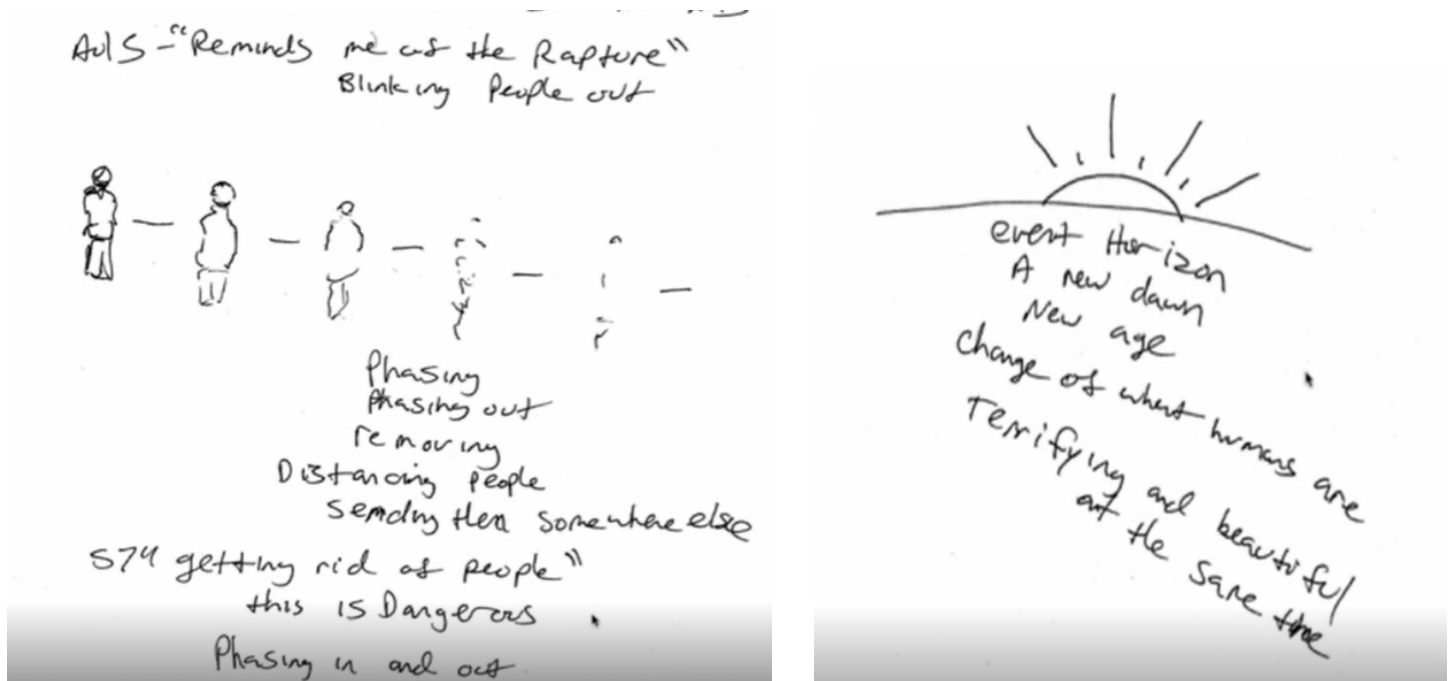 AolS - "Reminds me of the Rapture"
Blinking People out
Phasing
Phasing out
removing
Distancing people
Sending them somewhere else
getting rid of people"
this is Dangerous
Phasing in and out
event Horizon
A new dawn
New age
Change of what humans are
Terrifying and beautiful
at the same time